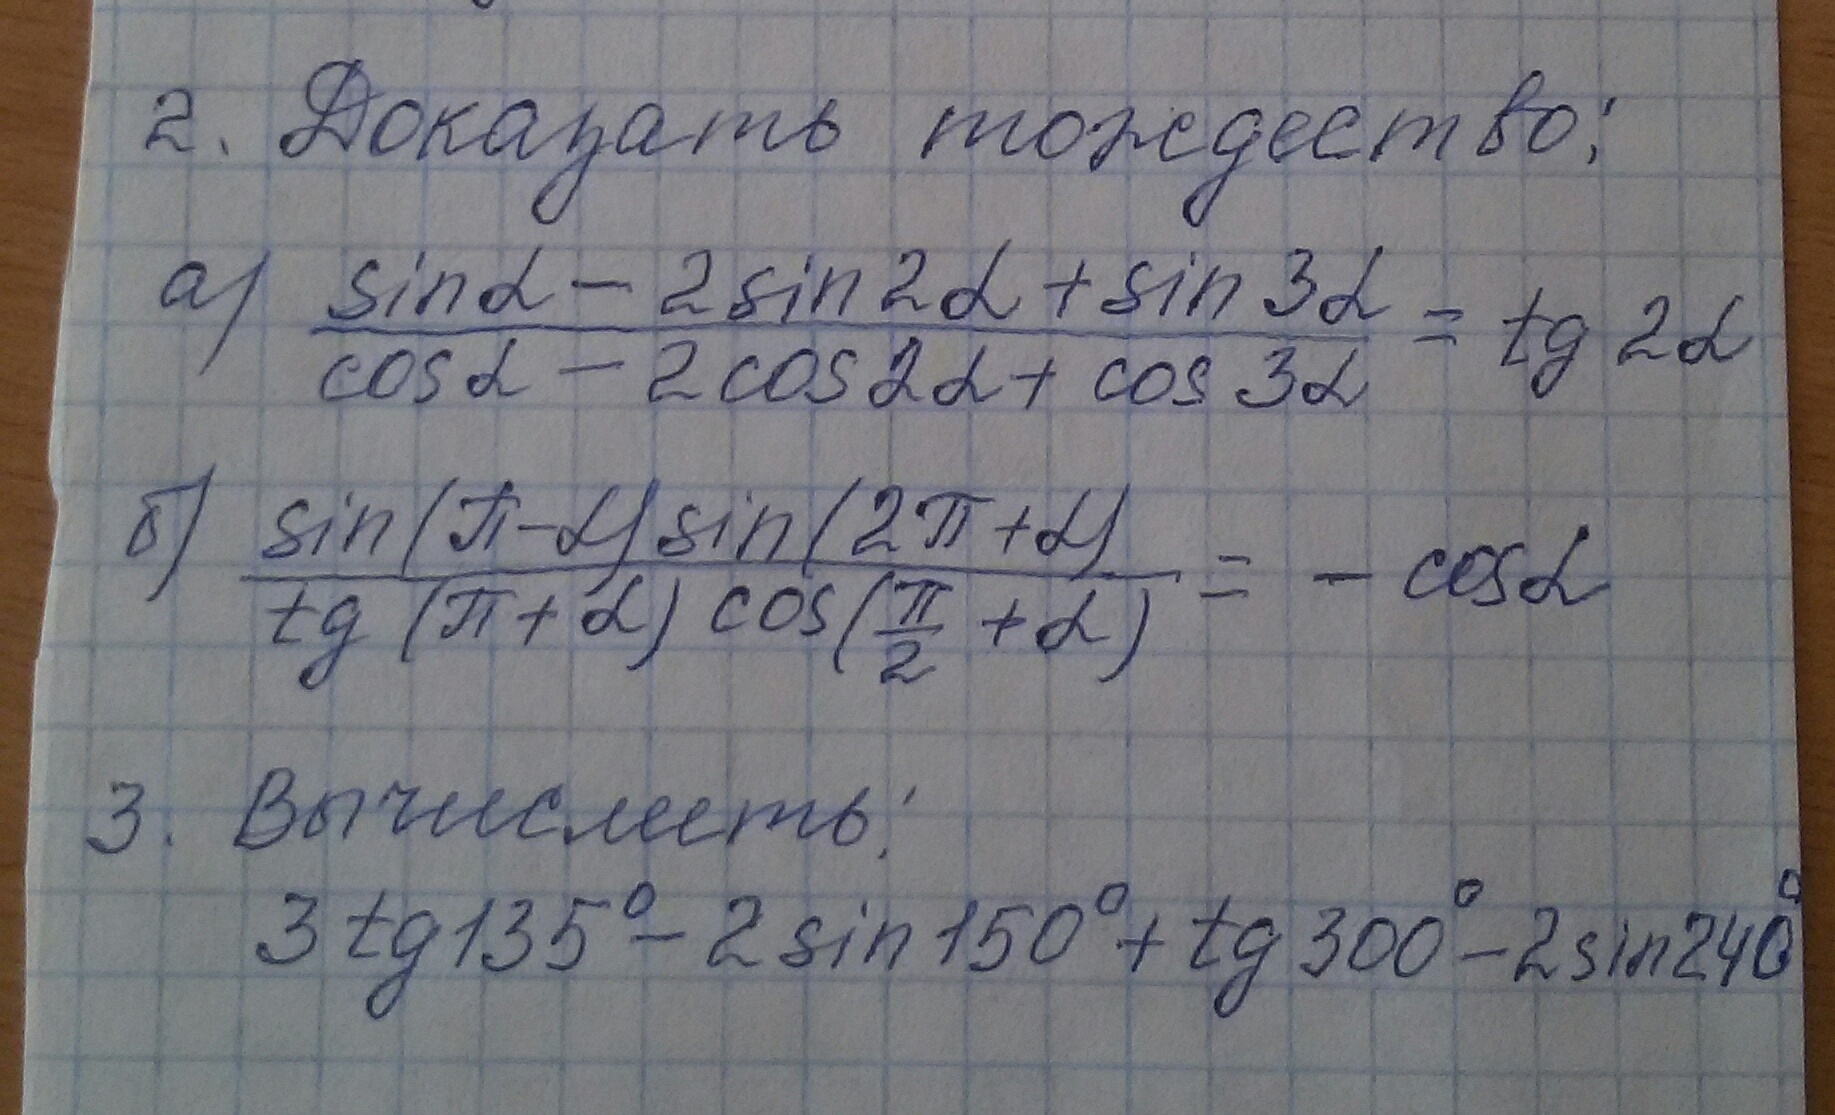 2. Доказать тождество:
а) (sinα − 2sin2α + sin3α)/(cosα − 2cos2α + cos3α) = tg 2α
б) (sin(π−α)sin(2π+α))/(tg(π+α)cos(π/2+α)) = − cosα
3. Вычислить:
3tg135° − 2sin150° + tg300° − 2sin240°